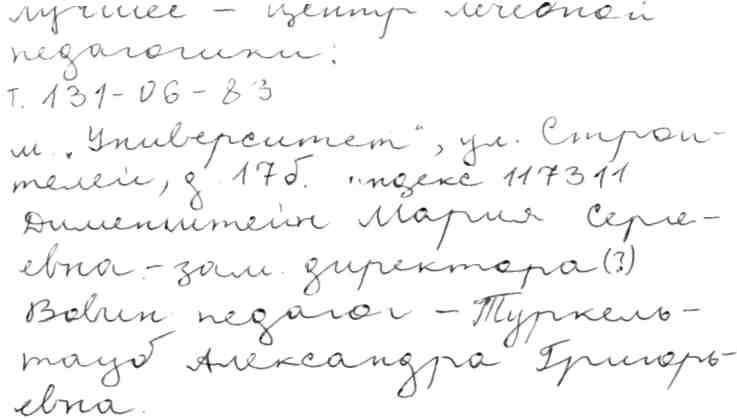 лучшее – центр лечебной
педагогики:
т. 131-06-83
м. „Университет", ул. Строи-
телей, д. 17б. индекс 117311
Дименштейн Мария Серге-
евна – зам. директора (?)
Вовин педагог – Туркель-
тауб Александра Григорь-
евна.